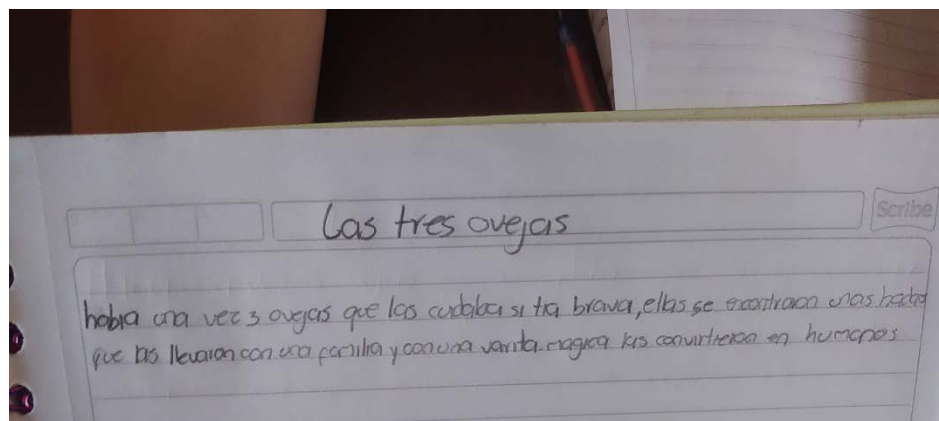 Scribe
Las tres ovejas
habia una vez 3 ovejas que las cuidaba su tia brava, ellas se encontraron unas hadas
que las llevaron con una familia y con una varita magica las convirtieron en humanos